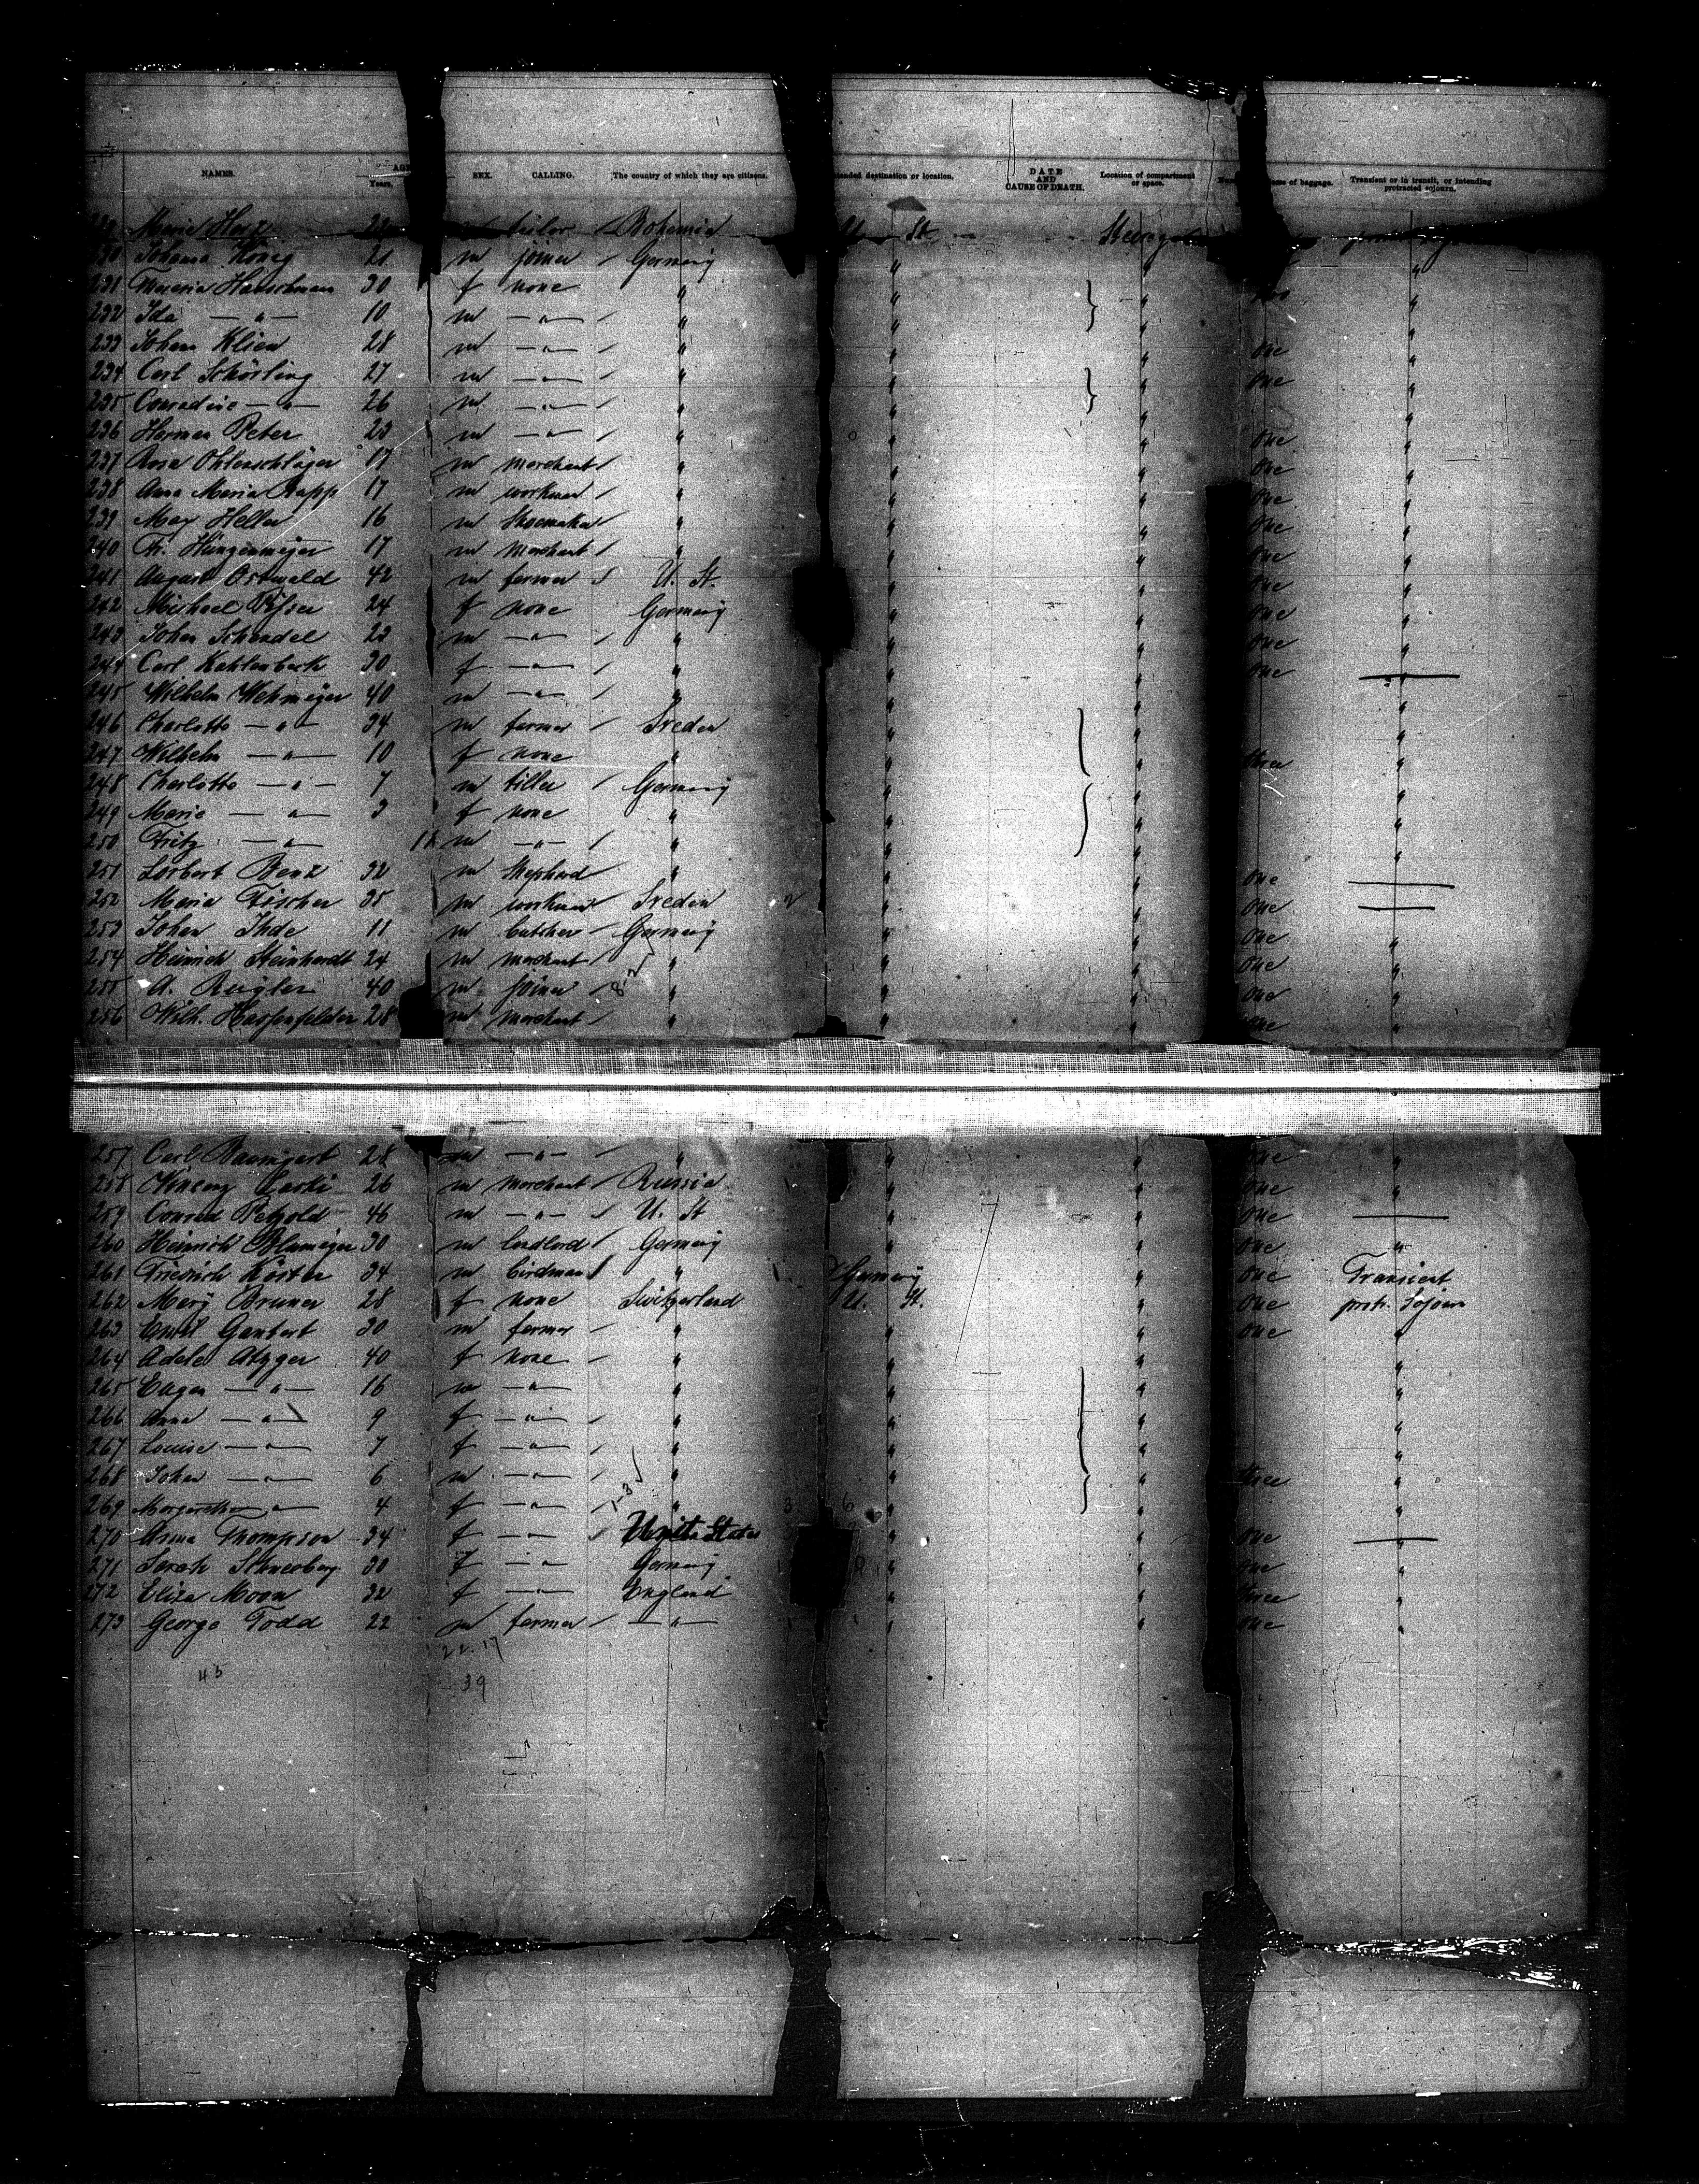 NAMES. AGE Years. SEX. CALLING. The country of which they are citizens. destination or location. DATE AND CAUSE OF DEATH. Location of compartment or space. of baggage. Transient or in transit, or intending protracted sojourn.
Maria Herz tailor Bohemia St.
230 Johann König 21 m joiner Germany "
231 Hauschman 30 f none " " " "
232 Ida —"— 10 m —"— " " " "
233 Johann Klien 28 m —"— " " " one "
234 Carl Schörling 27 m —"— " " " one "
235 Conradine —"— 26 m —"— " " " "
236 Herman Peter 23 m —"— " " " one "
237 Anna Ohlenschläger 17 m merchant " " " one "
238 Anna Maria Rapp 17 m workman " " " one "
239 Max Heller 16 m Shoemaker " " " one "
240 Fr. Hungenmeyer 17 m merchant " " " one "
241 August Ostwald 42 m farmer U. St. " " one "
242 Michael 24 f none Germany " " one "
243 Johan Schendel 23 m —"— " " " one "
244 Carl Kahlenbeck 30 f —"— " " " one —
245 Wilhelm Wehmeyer 40 m —"— " " " "
246 Charlotte —"— 34 m farmer Sveden " " "
247 Wilhelm —"— 10 f none " " " three "
248 Charlotte —"— 7 m tiller Germany " " "
249 Marie —"— 3 f none " " " "
250 Fritz —"— m —"— " " " "
251 Lorbert Benz 32 m Shepherd " " " one —
252 Maria Fischer 35 m workman Sveden 2 " " one —
253 Johan Ihde 11 m butcher Germany " " one "
254 Heinrich Steinhardt 24 m merchant " " " one "
255 A. Rugler 40 m joiner " " " one "
256 Wilh. Hassenfelder 28 m merchant " " " one "
257 Carl Baumgart 28 m —"— " " " one "
258 26 m merchant Russia " " one "
259 Conrad Petzold 46 m —"— U. St " " one —
260 Heinrich Blumeyer 30 m landlord Germany " " one "
261 Friedrich Köster 34 m birdman " Germany " one Transient
262 Mary Bruner 28 f none Switzerland U. St. " one protr. Sojourn
263 Emil Gantert 30 m farmer " " " one "
264 Adele Atzger 40 f none " " " "
265 Eugen —"— 16 m —"— " " " "
266 Anna —"— 9 f —"— " " " "
267 Louise —"— 7 f —"— " " " "
268 Johan —"— 6 m —"— " " " three "
269 Margaretha —"— 4 f —"— " 3 6 " " "
270 Anna Thompson 34 f —"— United States " " one —
271 Sarah Schneeberg 30 f —"— Germany " " one "
272 Eliza Moon 32 f —"— England " " three "
273 George Todd 22 m farmer —"— " " one "
22.17
45 39